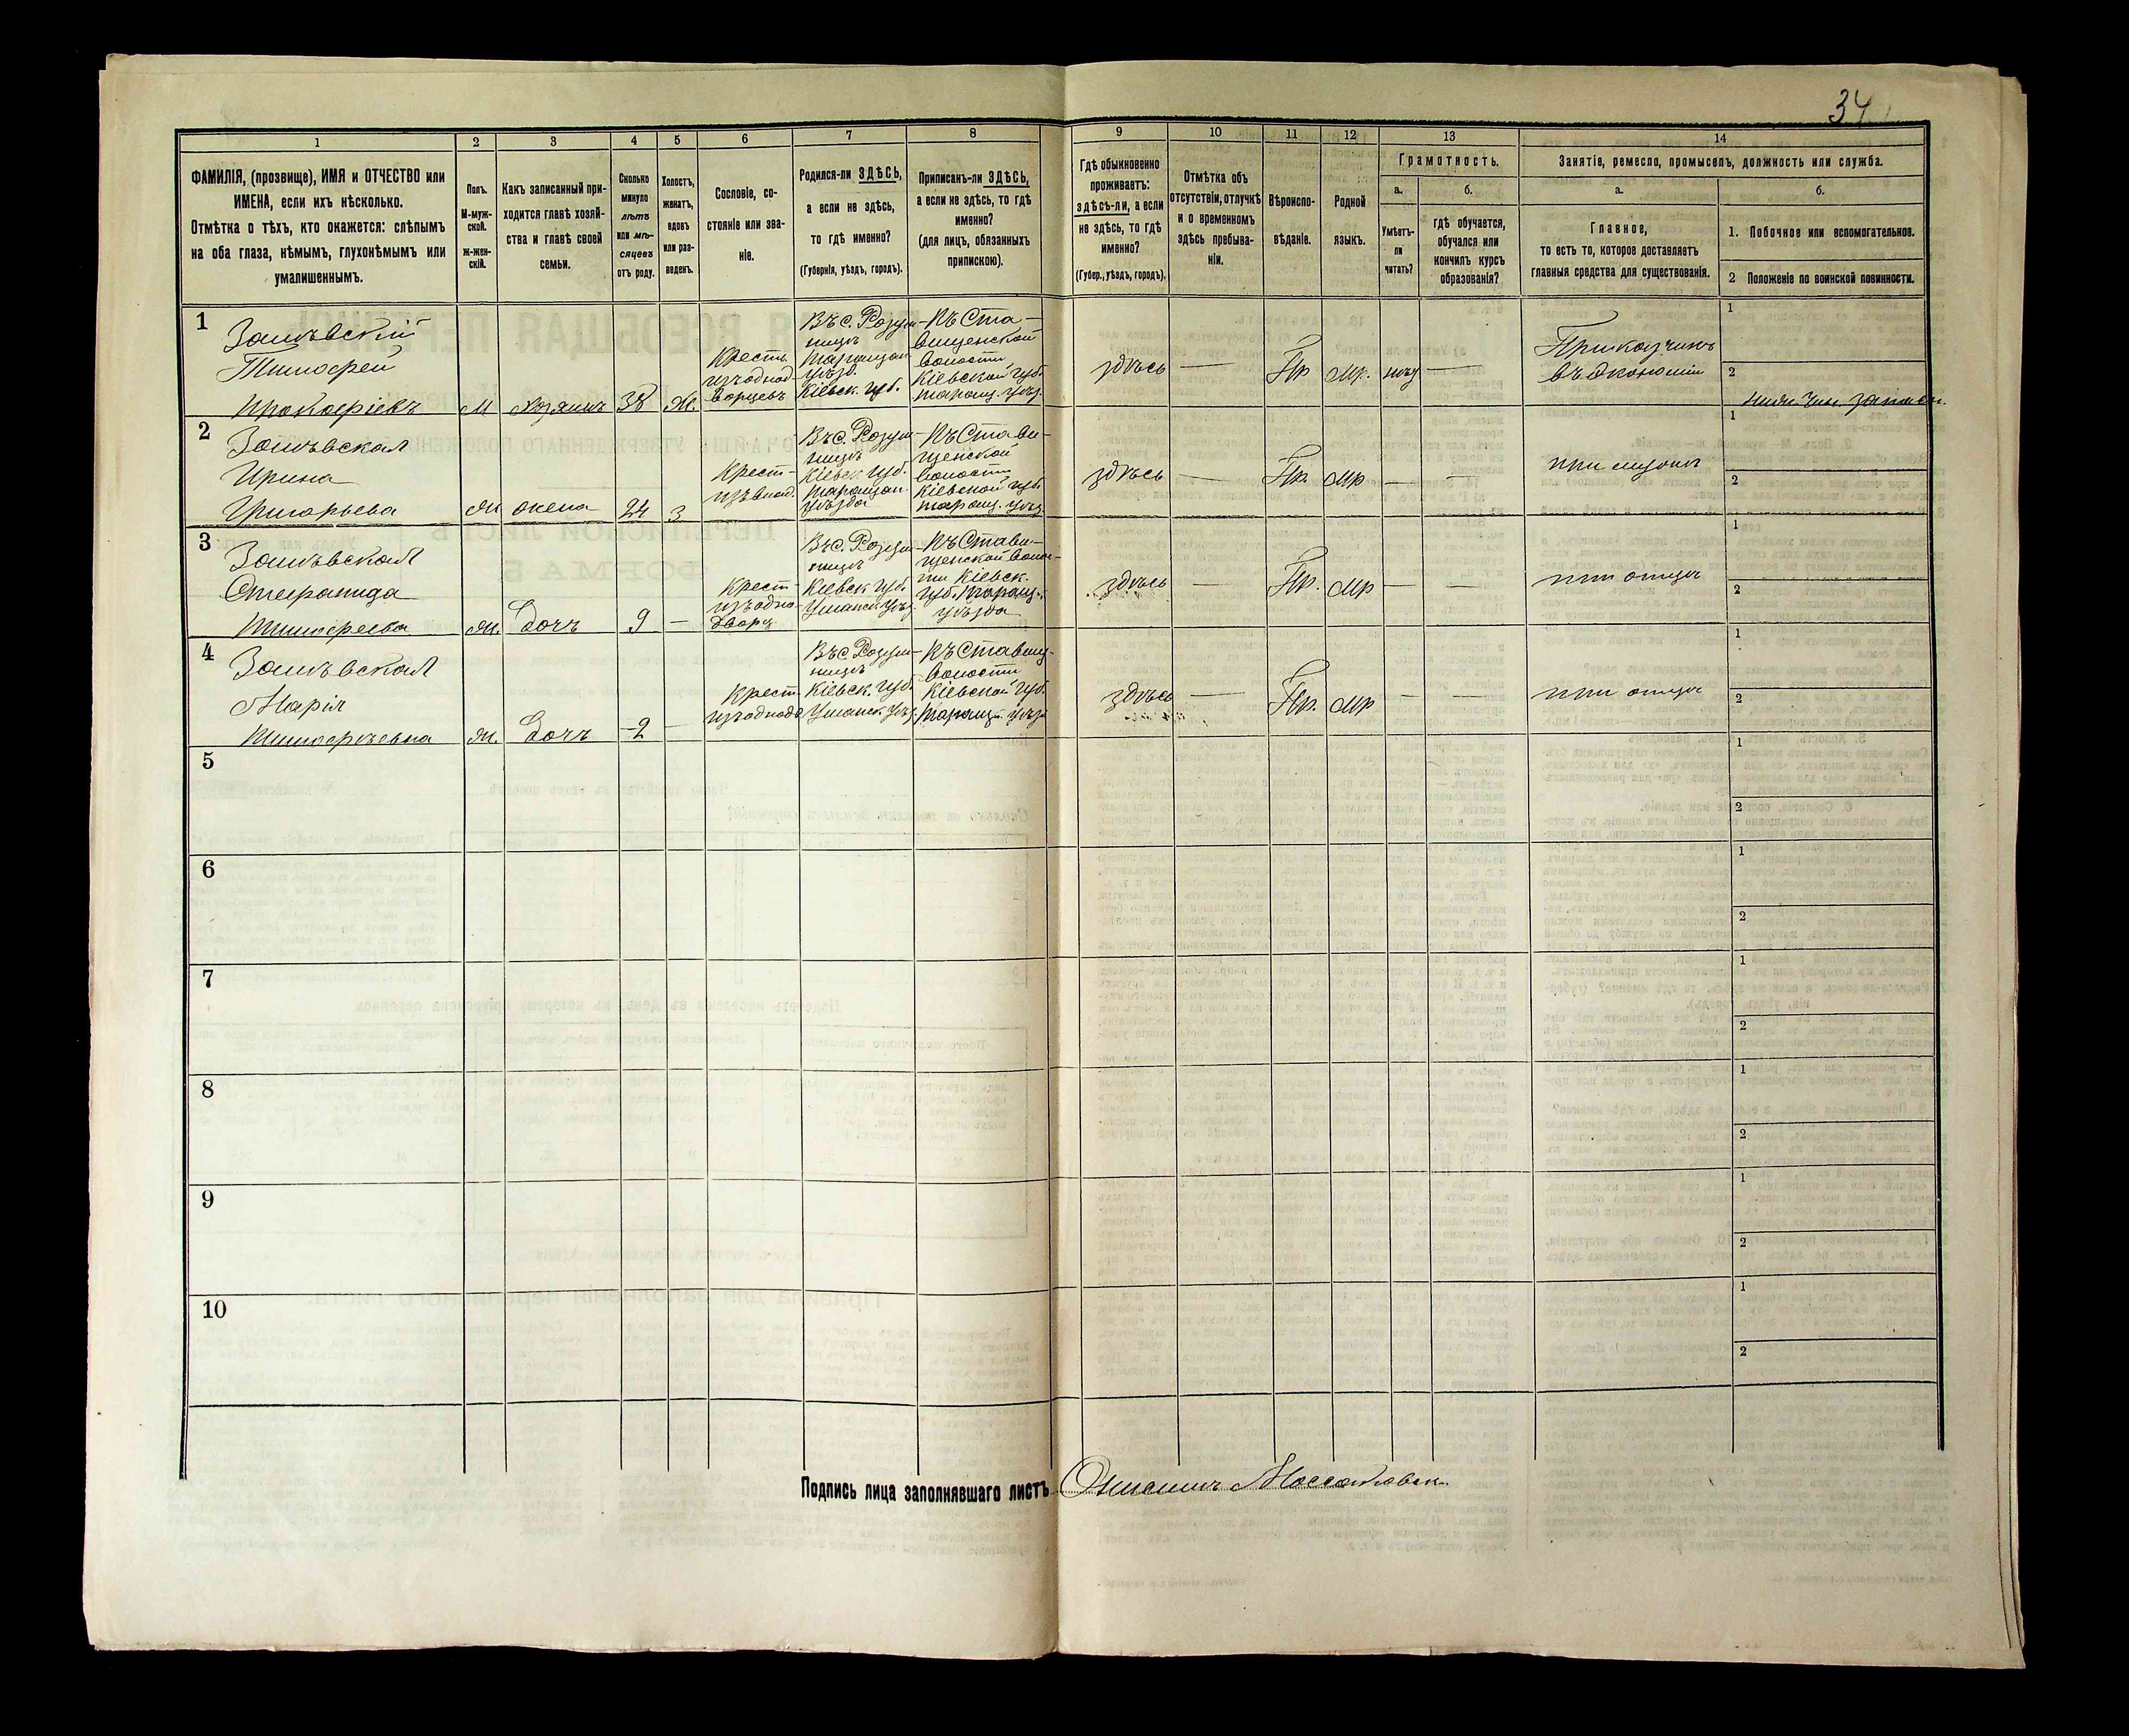 34
1 2 3 4 5 6 7 8 9 10 11 12 13 14
ФАМИЛІЯ, (прозвище), ИМЯ и ОТЧЕСТВО или
ИМЕНА, если ихъ нѣсколько.
Отмѣтка о тѣхъ, кто окажется: слѣпымъ
на оба глаза, нѣмымъ, глухонѣмымъ или
умалишеннымъ.
Полъ.
М-муж-
ской.
ж-жен-
скій.
Какъ записанный при-
ходится главѣ хозяй-
ства и главѣ своей
семьи.
Сколько
минуло
лѣтъ
или мѣ-
сяцевъ
отъ роду.
Холостъ,
женатъ,
вдовъ
или раз-
веденъ.
Сословіе, со-
стояніе или зва-
ніе.
Родился-ли ЗДѢСЬ,
а если не здѣсь,
то гдѣ именно?
(Губернія, уѣздъ, городъ).
Приписанъ-ли ЗДѢСЬ,
а если не здѣсь, то гдѣ
именно?
(для лицъ, обязанныхъ
припискою).
Гдѣ обыкновенно
проживаетъ:
здѣсь-ли, а если
не здѣсь, то гдѣ
именно?
(Губер., уѣздъ, городъ).
Отмѣтка объ
отсутствіи, отлучкѣ
и о временномъ
здѣсь пребыва-
ніи.
Вѣроиспо-
вѣданіе.
Родной
языкъ.
Грамотность.
а.
Умѣетъ-
ли
читать?
б.
гдѣ обучается,
обучался или
кончилъ курсъ
образованія?
Занятіе, ремесло, промыселъ, должность или служба.
а.
Главное,
то есть то, которое доставляетъ
главныя средства для существованія.
б.
1. Побочное или вспомогательное.
2 Положеніе по воинской повинности.
1
Тимофей
Прокофіевъ
М
Хозяинъ
38
Ж.
Крестъ.
изъ однод-
ворцевъ
Въ с. Розуш-
ницѣ
Таращан.
уѣзд.
Кіевск. губ.
Къ Ста-
вищенской
волости
Кіевской губ.
таращ. уѣз.
здѣсь
—
Пр
мр.
—
Прикащикъ
въ экономіи
1
2
2
Ирина
Григорьева
Ж
жена
24
З
Крест-
Въ с. Розуш-
ницѣ
Кіевск губ.
Таращан.
уѣзда
Къ Стави-
щенской
волости
Кіевской губ.
таращ. уѣз.
здѣсь
—
Пр.
мр
—
—
при мужѣ
1
2
3
Тимофеева
Ж.
Дочъ
9
—
Крест-
изъ одно-
дворц
Въ с. Розуш-
ницѣ
Кіевск губ.
Уманск уѣз.
Къ Стави-
щенской волос-
ти Кіевск.
губ. Таращ.
уѣзда
здѣсь
—
Пр.
мр
—
—
при отцѣ
1
2
4
Марія
Тимофѣевна
Ж.
Дочъ
2
—
Крест-
изъ однодв
Въ с. Розуш-
ницѣ
Кіевск. губ.
Уманск. уѣз.
Къ Ставищ-
волости
Кіевской губ.
Таращ. уѣз
здѣсь
—
Пр.
мр
—
—
при отцѣ
1
2
5
1
2
6
1
2
7
1
2
8
1
2
9
1
2
10
1
2
Подпись лица заполнявшаго листъ